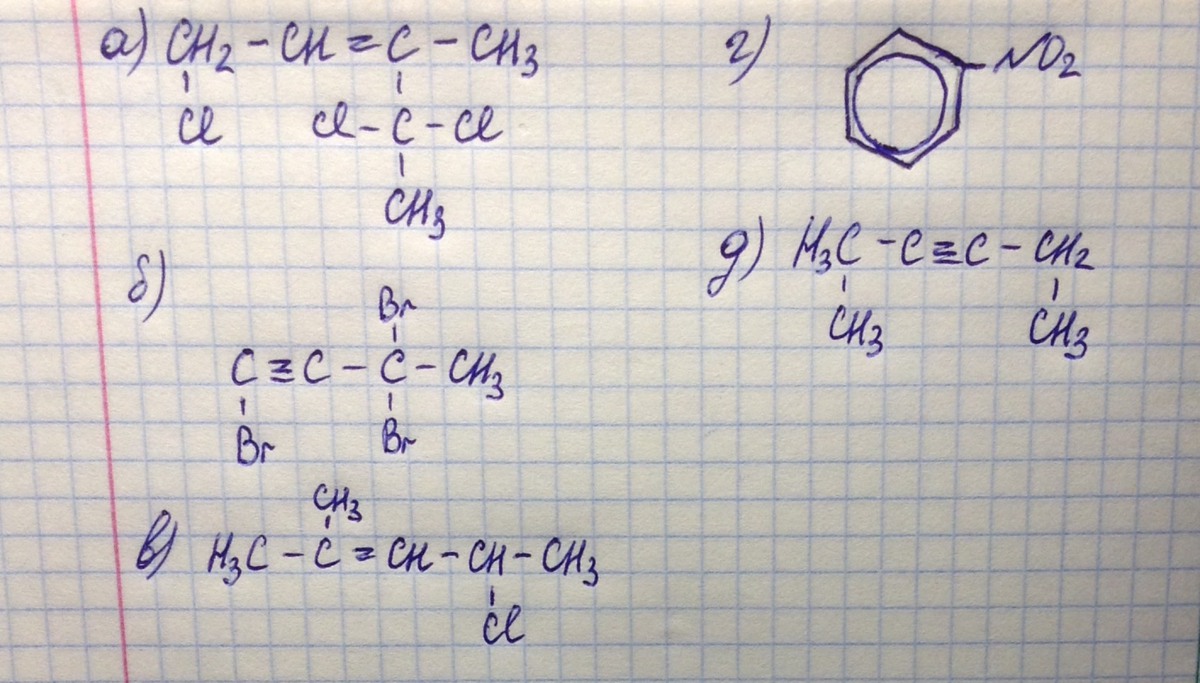 а) CH2 - CH = C - CH3
Cl Cl - C - Cl
CH3
б)
Br
C ≡ C - C - CH3
Br Br
в)
CH3
H3C - C = CH - CH - CH3
Cl
г) NO2
д) H3C - C ≡ C - CH2
CH3 CH3